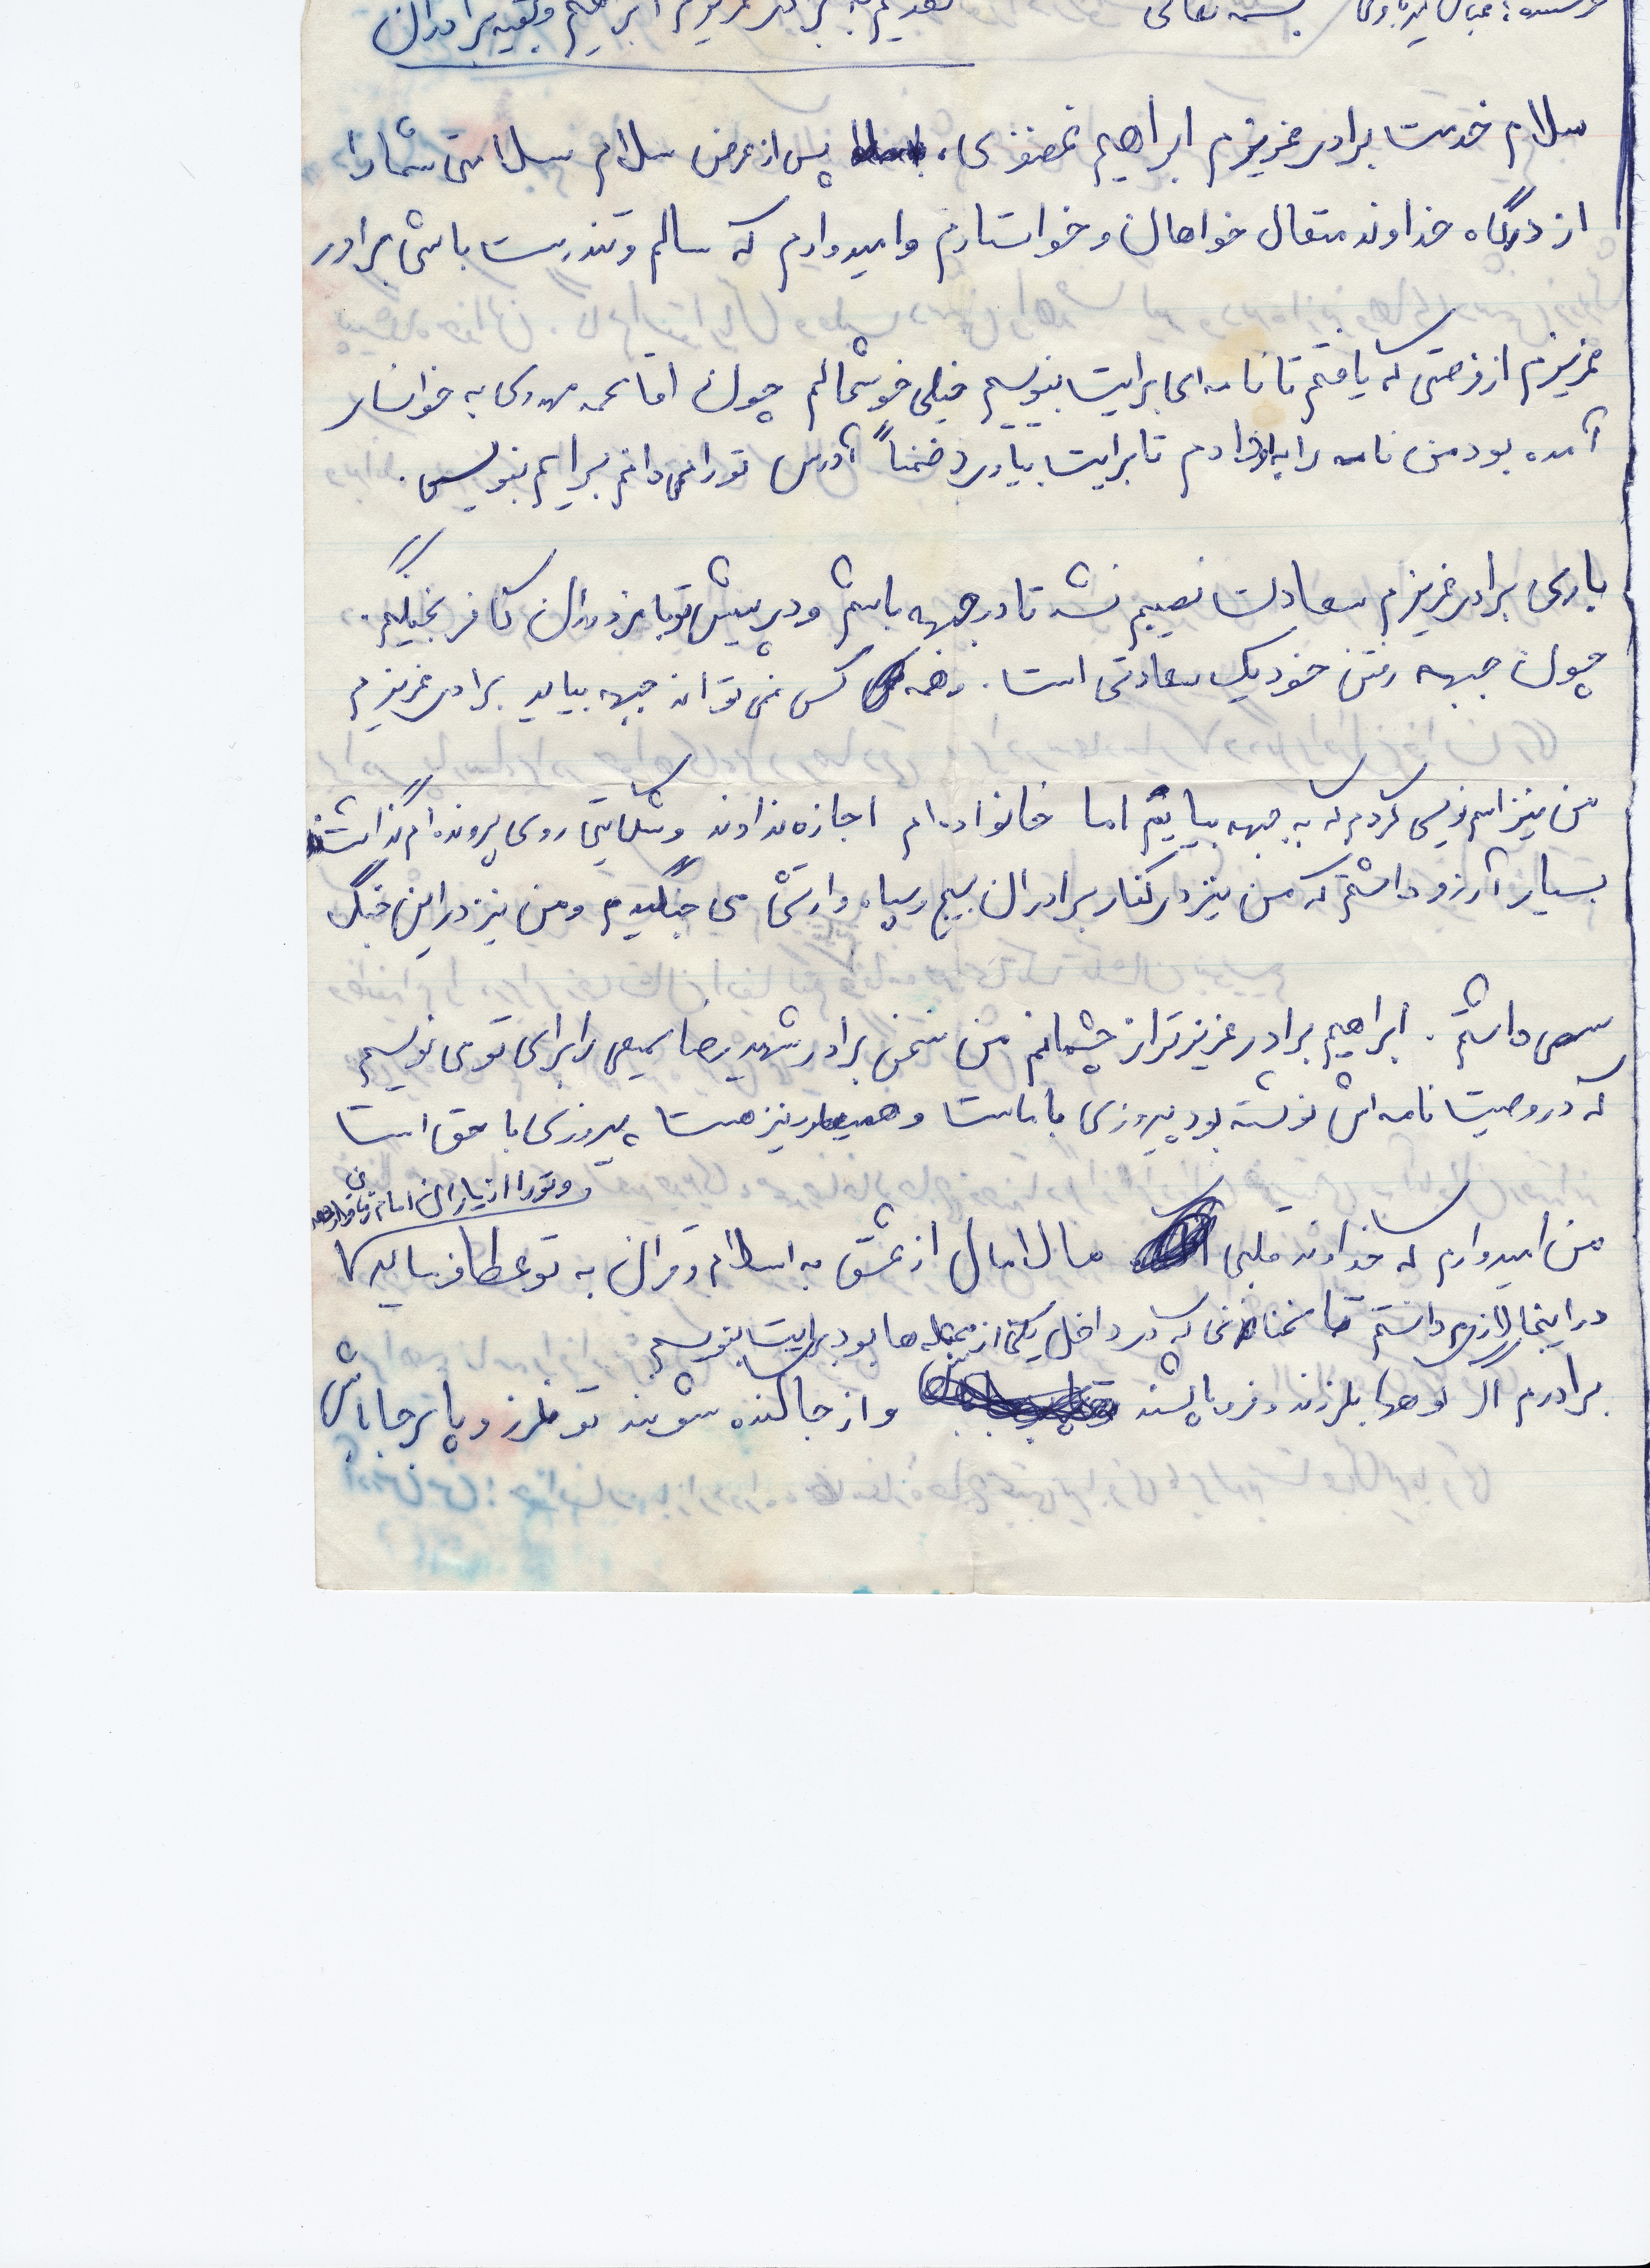 بسمه تعالی
تقدیم به برادر عزیزم ابراهیم و بقیه برادران
سلام خدمت برادر عزیزم ابراهیم غضنفری، پس از عرض سلام سلامتی شما را
از درگاه خداوند متعال خواهان و خواستارم و امیدوارم که سالم و تندرست باشی برادر
عزیزم از فرصتی که یافتم تا نامه‌ای برایت بنویسم خیلی خوشحالم چون آقا محمد مهدی به خوانسار
آمده بود من نامه را به او دادم تا برایت بیاورد ضمناً آدرس تو را نمی دانم برایم بنویس.
باری برادر عزیزم سعادت نصیبم نشد تا در جبهه باشم و در پیش تو با مزدوران کافر بجنگیم.
چون جبهه رفتن خود یک سعادتی است. و همه کس نمی تواند جبهه بیاید برادر عزیزم
من نیز اسم نویسی کردم که به جبهه بیایم اما خانواده ام اجازه ندادند و شکایتی روی پرونده ام گذاشتند
بسیار آرزو داشتم که من نیز در کنار برادران بسیج و سپاه و ارتش می جنگیدم و من نیز در این جنگ
سهمی داشتم. ابراهیم برادر عزیزتر از چشمانم من سخن برادر شهید رضا سمیعی را برای تو می نویسم
که در وصیت نامه اش نوشته بود پیروزی با ماست و همینطور نیز هست پیروزی با حق است
و تو را از یاران امام زمان قرار دهد
من امیدوارم که خداوند قلبی مالامال از عشق به اسلام و قرآن به تو عطا فرماید
در اینجا لازم دانستم تا سخنانی که در داخل یکی از مجله ها بود برایت بنویسم
برادرم اگر کوهها بلرزند و فرو پاشند و از جا کنده شوند تو ملرز و پا برجا باش